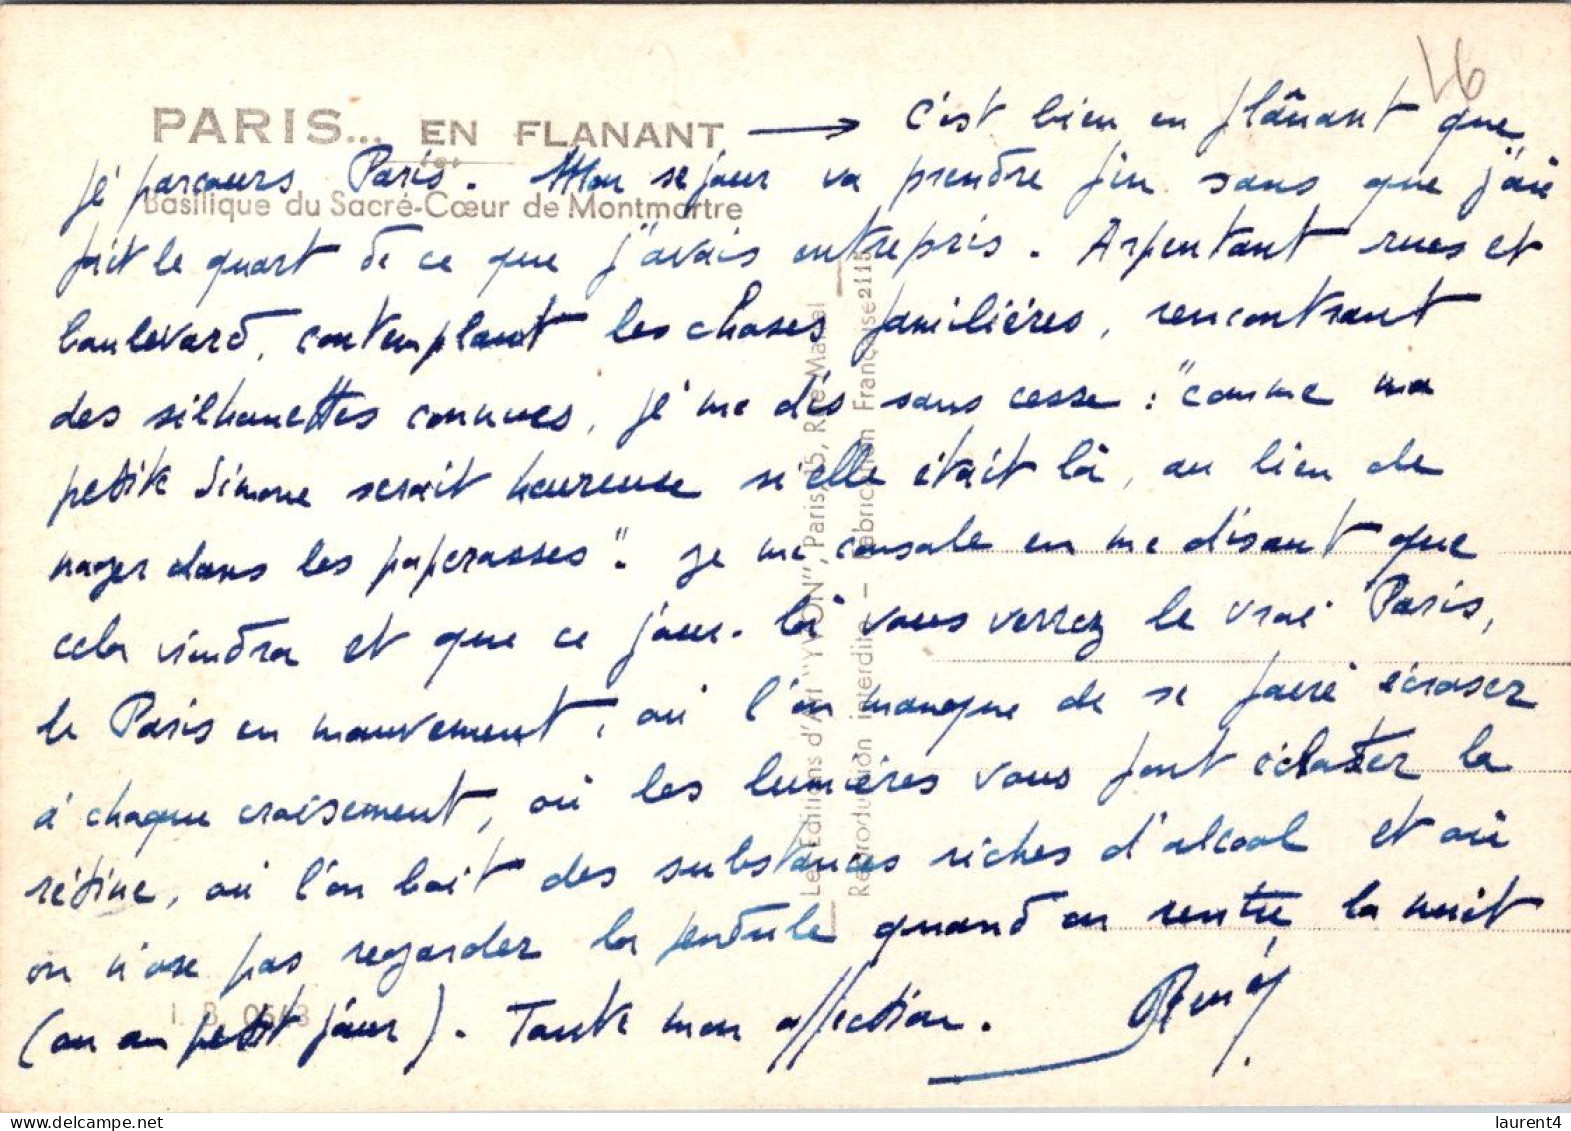 16
PARIS... EN FLANANT → c'est bien en flânant que
je parcours Paris. Mon séjour va prendre fin sans que j'aie
Basilique du Sacré-Cœur de Montmartre
fait le quart de ce que j'avais entrepris. Arpentant rues et
boulevard, contemplant les choses familières, rencontrant
des silhouettes connues, je me dis sans cesse : "comme ma
petite Simone serait heureuse si elle était là, au lieu de
nager dans les paperasses". Je me console en me disant que
cela viendra et que ce jour-là vous verrez le vrai Paris,
le Paris en mouvement, où l'on manque de se faire écraser
à chaque croisement, où les lumières vous font éclater la
rétine, où l'on boit des substances riches d'alcool et où
on n'ose pas regarder la pendule quand on rentre la nuit
(ou au petit jour). Toute mon affection. René
Les Editions d'Art "YVON", Paris, 15, Rue Martel
Reproduction interdite — Fabrication Française
laurent4